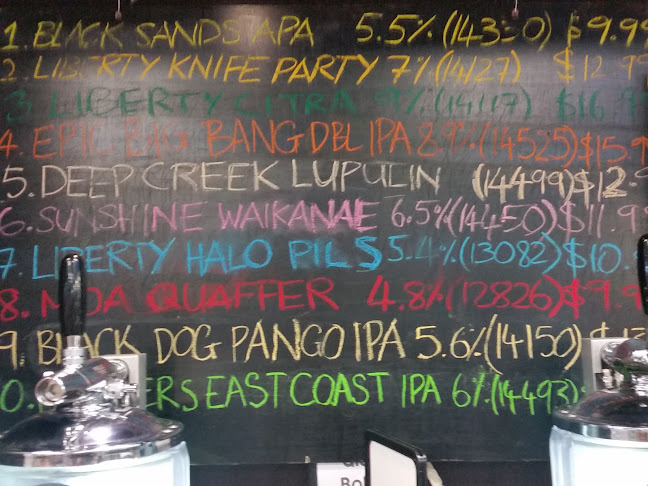 1. BLACK SANDS APA 5.5% (14330) $9.99
2. LIBERTY KNIFE PARTY 7% (14127) $12.99
3. LIBERTY CITRA 9% (14117) $16.9
4. EPIC BIG BANG DBL IPA 8.9% (14525) $15.9
5. DEEP CREEK LUPULIN (14499) $12.9
6. SUNSHINE WAIKANAE 6.5% (14450) $11.9
7. LIBERTY HALO PILS 5.4% (13082) $10.
8. MOA QUAFFER 4.8% (12826) $9.9
9. BLACK DOG PANGO IPA 5.6% (14150) $
0. ERS EAST COAST IPA 6% (14493)